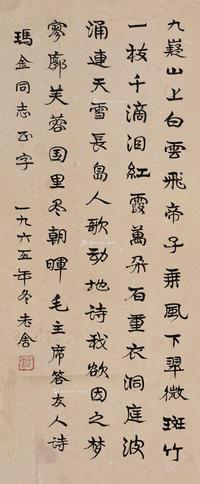 九嶷山上白雲飛帝子乘風下翠微斑竹
一枝千滴泪紅霞萬朵百重衣洞庭波
涌連天雪長島人歌动地诗我欲因之梦
寥廓芙蓉国里尽朝暉 毛主席答友人诗
瑪金同志正字 一九六五年冬老舍